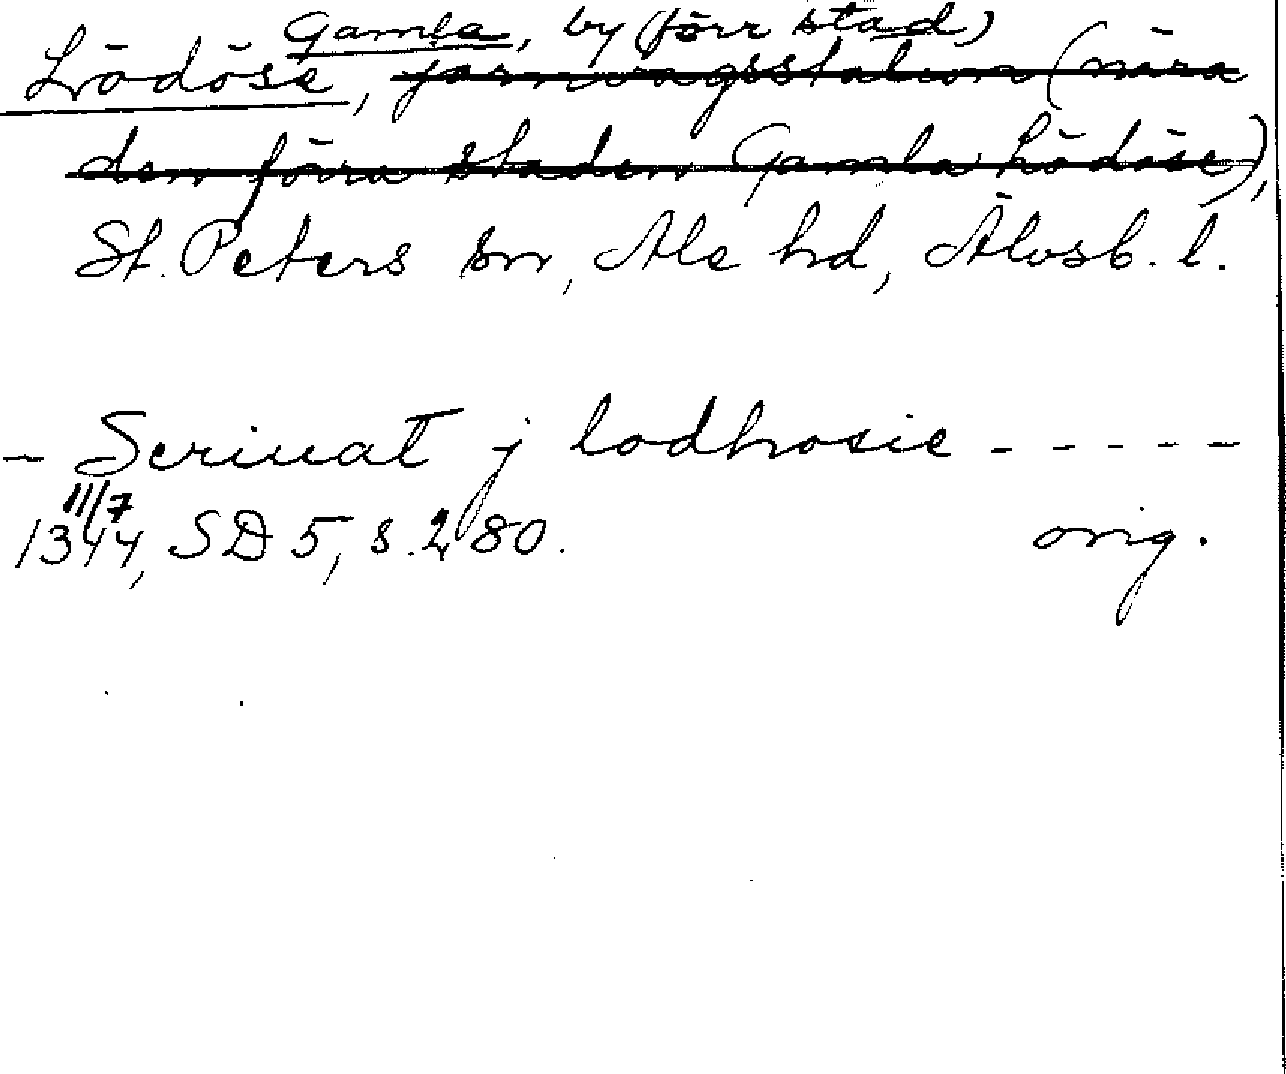 Gamla, by (förr stad)
Lödöse, järnvägsstation (nära
den förra staden Gamla Lödöse),
St. Peters sn, Ale hd, Älvsb. l.
- Scriuat j lodhosie - - - - -
11/7
1344, SD 5, s. 280. orig.